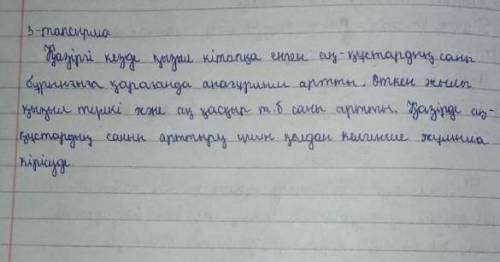 3-тапсырма
Қазіргі кезде қызыл кітапқа енген аң-құстардың саны
бұрынғыға қарағанда анағұрлым артты. Өткен жылы
қызыл түлкі және ақ қасқыр т.б саны артты. Қазірде аң-
құстардың санын арттыру үшін қолдан келгенше жұмысқа
кірісуде.